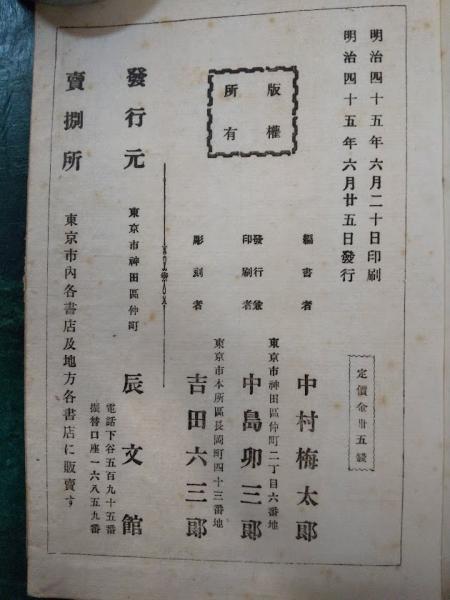 明治四十五年六月二十日印刷
明治四十五年六月廿五日發行
定價金卅五錢
版權所有
編書者
中村梅太郎
東京市神田區仲町二丁目六番地
發行兼印刷者
中島卯三郎
東京市本所區長岡町四十三番地
彫刻者
吉田六三郎
發行元
東京市神田區仲町
辰文館
電話下谷五百九十五番
振替口座一六八五九番
賣捌所
東京市內各書店及地方各書店に販賣す